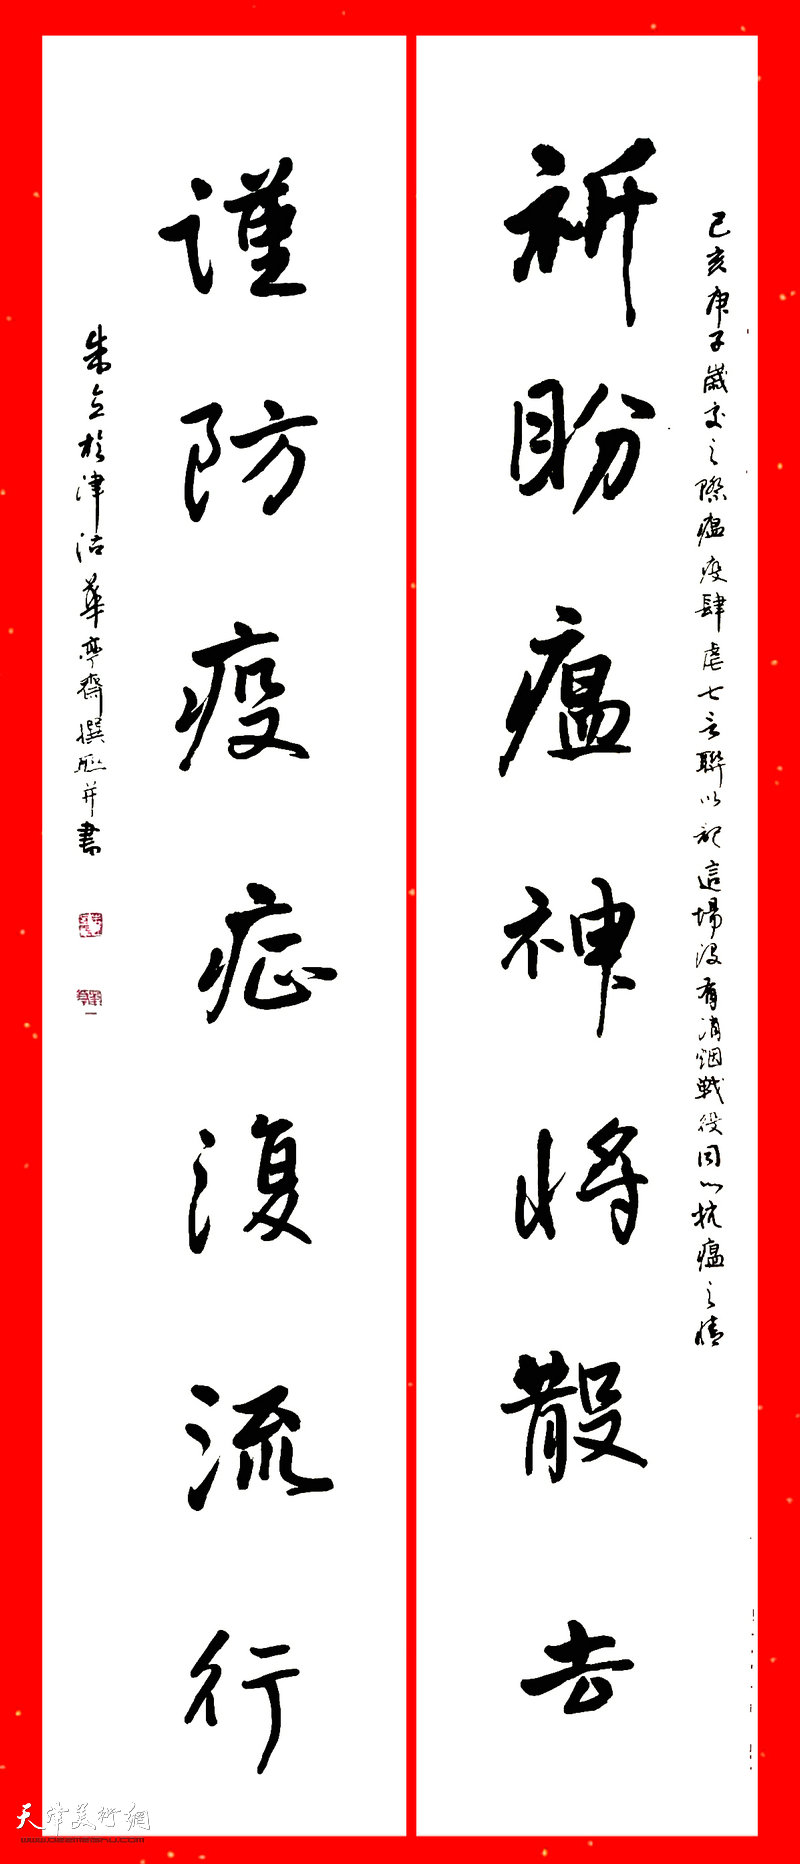 己亥庚子歲交之際瘟疫肆虐七言聯以記這場没有消烟戰役同以抗瘟之情
祈盼瘟神將散去
謹防疫症復流行
朱立於津沽華亭齋撰聯并書
天津美術網